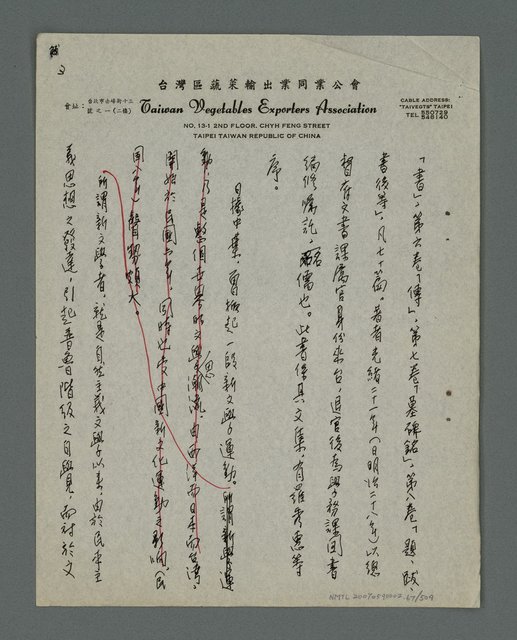 台灣區蔬菜輸出業同業公會
會址：台北市赤峰街十三號之一（二樓）
Taiwan Vegetables Exporters Association
CABLE ADDRESS:
"TAIVEGTS" TAIPEI
TEL 550729
NO, 13-1 2ND FLOOR, CHYH FENG STREET
TAIPEI TAIWAN REPUBLIC OF CHINA
「書」，第六卷「傳」，第七卷「墓碑銘」，第八卷「題、跋、
書後等」，凡七十篇。著者光緒二十一年（日明治二十八年）以總
督府文書課屬官身份來台，退官後為學務課囘書
編修囑託，名儒也。此書係其文集，有羅秀惠等
序。
日據中葉，曾掀起一段新文學運動。所謂新學運
動，乃是整個世界的文學思潮流，由西洋而日本而台灣。
開始於民國    年，同時也受中國新文化運動之影响（民
國八年）聲勢頗大。
所謂新文學者，就是自然主義文學以来，由於民本主
義思想之發達，引起普魯階級之自學見，而對於文
NMTL 20090590002 67/509